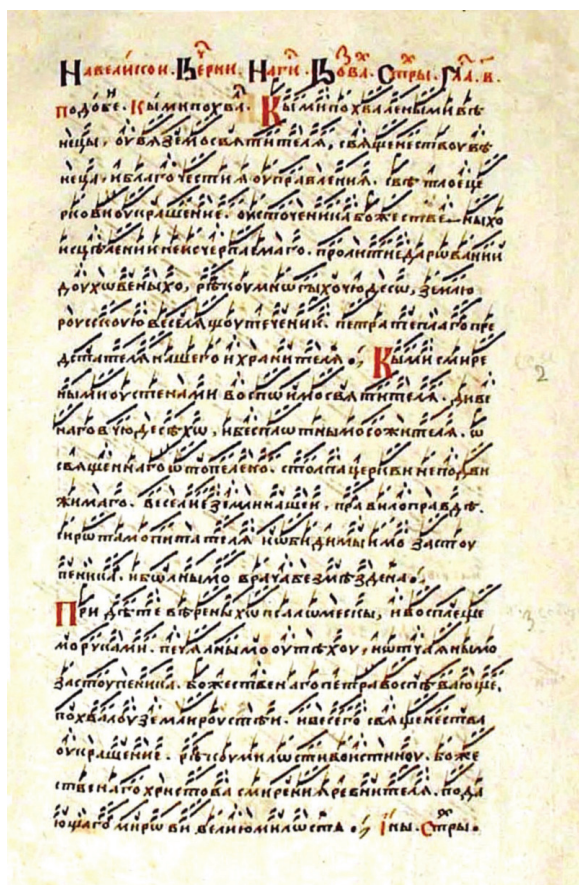 Навелікои. Вѣрни. Наги. Вова. Стры. Гла. в.
подобе. Кыми похва. Кыми похвалеными вѣ
нцы, оувяземо святителя, священествоу вѣ
неца, и благочестия оуправления. свѣтлое це
рковноукрашение. оу источеника божественыхо
исцѣлении неисчерпаемаго. пролитие дарωвании
доухωвеныхо, рѣкоу мнωгыхо чюдесω, землю
роусскоую веселящоу течении. петра теплаго пре
дстателя нашего и хранителя. Кыми смире
ными оустенами воспωимо святителя. диве
наго в чюдесѣхω, и бесплотнымо сожителя. ω
священнаго ωтопелено. столпа церкви неподви
жимаго. веселие земли нашеи, правило правдѣ.
сирωтамо питателя и ωбидимыимо застоу
пеника. и бωлнымо врача безмѣздена.
Придѣте вѣреныхω пелкωмески, и восплеще
мо роуками. печялнымо оутѣхоу, и ωтчяянымо
застоупеника. божественаго петра воспѣвающе,
похвалоу земли роустѣи. и всего священества
оукрашение. рѣкоу милωсти воистиноу. боже
ственаго христова смирения ревнителя. пода
ющаго мирωви велию милωсть. Іны. Стры.